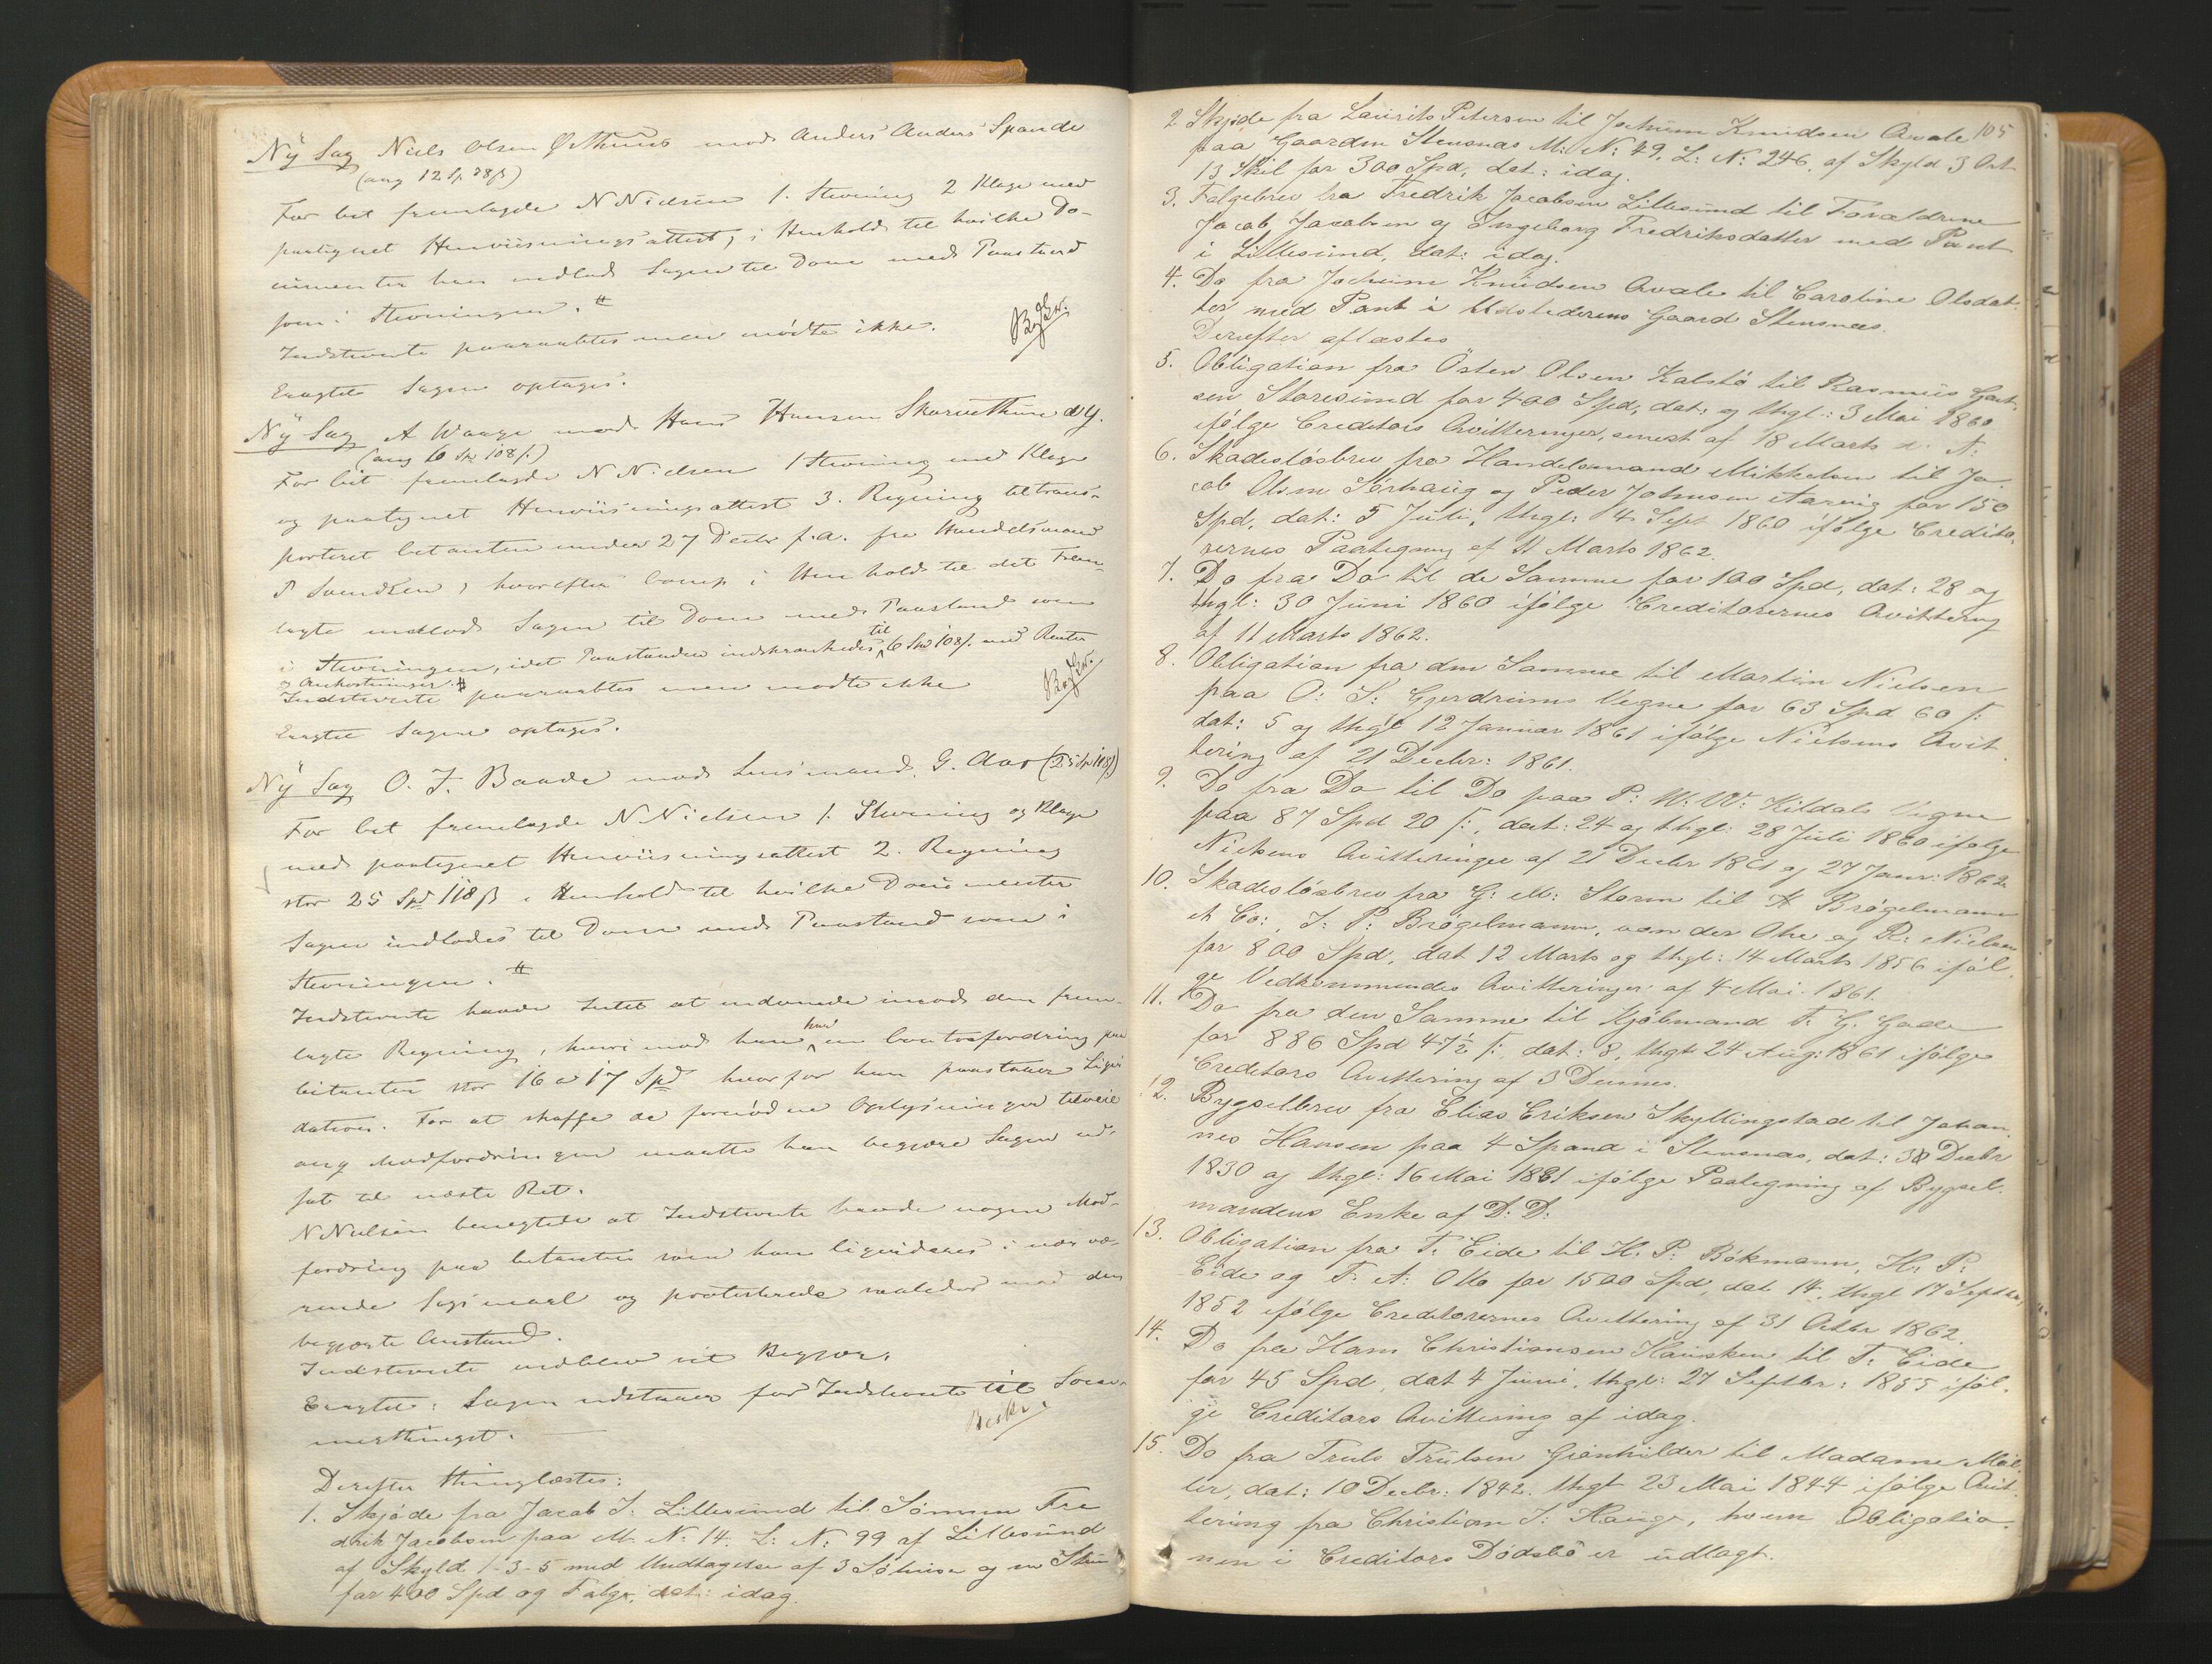 Ny Sag Niels Olsen Østhuus mod Anders Anders Spande
(ang 12 Sp. 38 ß)
For Cit fremlagde N Nielsen 1. Stevning 2 Klage med
paategnet Henviisningsattest, i Henhold til hvilke Do-
cumenter han indlod Sagen til Dom med Paastand
som i Stevningen.
Indstevnte paaraabtes men mødte ikke.
Eragtet Sagen optages.
Ny Sag A Waage mod Hans Hansen Skarvethun d.y.
(ang 6 Spd 108 ß.)
For Cit fremlagde N Nielsen 1 Stevning med Klage
og paategnet Henviisningsattest 3. Regning til trans-
porteret Citanten under 27 Decbr f.A. fra Handelsmand
P Svendsen, hvorefter Comp i Henhold til det Frem-
lagte indlod Sagen til Dom med Paastand som
i Stevningen, idet Paastanden indskrænkedes til 6 Spd 108 ß. med Renter
og Omkostninger.
Indstevnte paaraabtes men mødte ikke
Eragtet Sagen optages.
Ny Sag O. J. Baade mod Lensmand G. Aar (25 Sp 118 ß)
For Cit fremlagde N Nielsen 1. Stevning og Klage
med paategnet Henviisningsattest 2. Regning
stor 25 Spd 118 ß i Henhold til hvilke Documenter
Sagen indlodes til Dom med Paastand som i
Stevningen.
Indstevnte havde Intet at indvende imod den frem-
lagte Regning, hvori mod han har en Contrafordring paa
Citanten stor 16 a 17 Spd hvorfor han paastaaer Liqvi
dation. For at skaffe de fornødne Oplysninger tilveie
ang Modfordringen maatte han begjære Sagen ud-
sat til næste Ret.
N Nielsen benegtede at Indstevnte havde nogen Mod-
fordring paa Citanten som kan liqvideres i nær væ-
rende Søgsmaal og protesterede saaledes mod den
begjærte Anstand.
Indstevnte vedblev sit Begjær.
Eragtet: Sagen udstaaer for Indstevnte til Som-
merthinget.
Beskr.
Derefter thinglæstes:
1. Skjøde fra Jacob J. Lillesund til Sønnen Fre
drik Jacobsen paa M. N. 14. L: N: 99 af Lillesund
af Skyld 1-3-5 med Undtagelse af 3 Søhuse og en
for 400 Spd og Folge, dat: idag.
105
2 Skjøde fra Laurits Petersen til Jochum Knudsen Avale
paa Gaarden Stensnæs M: N: 49. L: N: 246. af Skyld 3 Ort
13 Skil for 300 Spd, dat: idag.
3. Folgebrev fra Fredrik Jacobsen Lillesund til Forældrene
Jacob Jacobsen og Ingeborg Fredriksdatter med Pant
i Lillesund, dat: idag.
4. Do fra Jochum Knudsen Avale til Caroline Olsdat-
ter med Pant i Udstederens Gaard Stensnæs.
Derefter aflæstes
5. Obligation fra Østen Olsen Kalstø til Rasmus Gaut-
sen Storesund for 400 Spd, dat: og thgl: 3 Mai 1860
ifølge Creditors Qvitteringer, senest af 18 Marts d. A.
6. Skadesløsbrev fra Handelsmand Mikkelsen til Ja-
cob Olsen Sørhaug og Peder Johnsen Aareng for 150
Spd, dat: 5 Juli, thgl: 4 Sept 1860 ifølge Credito-
rernes Paategning af 11 Marts 1862.
7. Do fra Do til de Samme for 100 Spd, dat: 28 og
thgl: 30 Juni 1860 ifølge Creditorernes Qvittering
af 11 Marts 1862.
8. Obligation fra den Samme til Martin Nielsen
paa O: S: Gjerdrums Vegne for 63 Spd 60 ß:
dat: 5 og thgl 12 Januar 1861 ifølge Nielsens Qvit-
tering af 21 Decbr: 1861.
9. Do fra Do til Do paa P: M: W: Kildals Vegne
paa 87 Spd 20 ß:, dat: 24 og thgl: 28 Juli 1860 ifølge
Nielsens Qvitteringer af 21 Decbr 1861 og 27 Janr: 1862
10. Skadesløsbrev fra G: M: Storm til H Brøgelmann
& Co:, J: P: Brøgelmann, von der Ohe og R: Nielsen
for 800 Spd, dat 12 Marts og thgl: 14 Marts 1856 iføl
ge Vedkommendes Qvitteringer af 4 Mai 1861.
11. Do fra den Samme til Kjøbmand F. G. Gade
for 886 Spd 47½ ß:, dat: 8, thgl: 24 Aug: 1861 ifølge
Creditors Qvittering af 3 Dennes.
12. Bygselbrev fra Elias Eriksen Skyllingstad til Johan
nes Hansen paa 4 Spand i Stensnæs, dat: 31 Decbr
1830 og thgl: 16 Mai 1831 ifølge Paategning af Bygsel-
mandens Enke af D: D:
13. Obligation fra T: Eide til H. P: Bøkmann, H: P:
Eide og F: A: Otto for 1500 Spd, dat 14. thgl 17 Septbr,
1852 ifølge Creditorernes Qvittering af 31 Octbr 1862.
14. Do fra Hans Christiansen Hausken til T: Eide
for 45 Spd, dat 4 Juni, thgl: 27 Septbr: 1855 iføl-
ge Creditors Qvittering af idag.
15. Do fra Truls Trulsen Grønhilder til Madame Møl-
ler, dat: 10 Decbr: 1842. thgl 23 Mai 1844 ifølge Qvit-
tering fra Christian J: Hauge, hvem Obligatio-
nen i Creditors Dødsbo er udlagt.